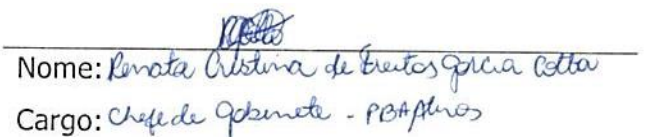 Nome: Renata Cristina de Freitas Garcia Cotta
Cargo: Chefe de Gabinete -